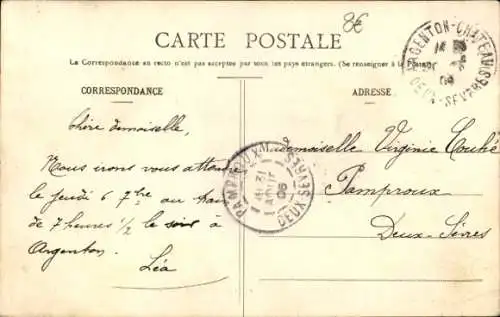 8€
CARTE POSTALE
La Correspondance au recto n'est pas acceptée par tous les pays étrangers. (Se renseigner à la Poste)
CORRESPONDANCE
ADRESSE
ARGENTON-CHÂTEAU
DEUX-SÈVRES
Chère demoiselle,
Nous irons vous attendre
le jeudi 6 7bre au train
de 7 heures 1/2 le soir à
Argenton.
Léa
PAMPROUX
31
AOUT
06
DEUX SÈVRES
Mademoiselle Virginie Couhé
Pamproux
Deux-Sèvres